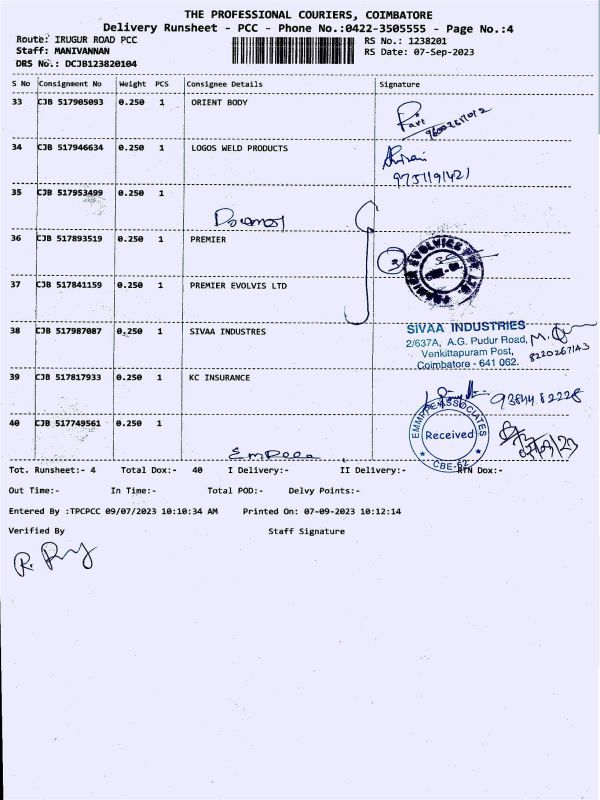 THE PROFESSIONAL COURIERS, COIMBATORE
Delivery Runsheet - PCC - Phone No.:0422-3505555 - Page No.:4
Route: IRUGUR ROAD PCC
RS No.: 1238201
Staff: MANIVANNAN
RS Date: 07-Sep-2023
DRS No.: DCJB123820104
S No Consignment No Weight PCS Consignee Details Signature
33 CJB 517905093 0.250 1 ORIENT BODY
34 CJB 517946634 0.250 1 LOGOS WELD PRODUCTS
9751191421
35 CJB 517953499 0.250 1
36 CJB 517893519 0.250 1 PREMIER
2
PREMIER EVOLVICS PVT LTD.
37 CJB 517841159 0.250 1 PREMIER EVOLVIS LTD
38 CJB 517987087 0.250 1 SIVAA INDUSTRES
SIVAA INDUSTRIES
2/637A, A.G. Pudur Road,
Venkittapuram Post,
Coimbatore - 641 062.
8220267143
39 CJB 517817933 0.250 1 KC INSURANCE
9384482228
40 CJB 517749561 0.250 1
ASSOCIATES
Received
CBE-62
Tot. Runsheet:- 4 Total Dox:- 40 I Delivery:- II Delivery:- RTN Dox:-
Out Time:- In Time:- Total POD:- Delvy Points:-
Entered By :TPCPCC 09/07/2023 10:10:34 AM Printed On: 07-09-2023 10:12:14
Verified By Staff Signature